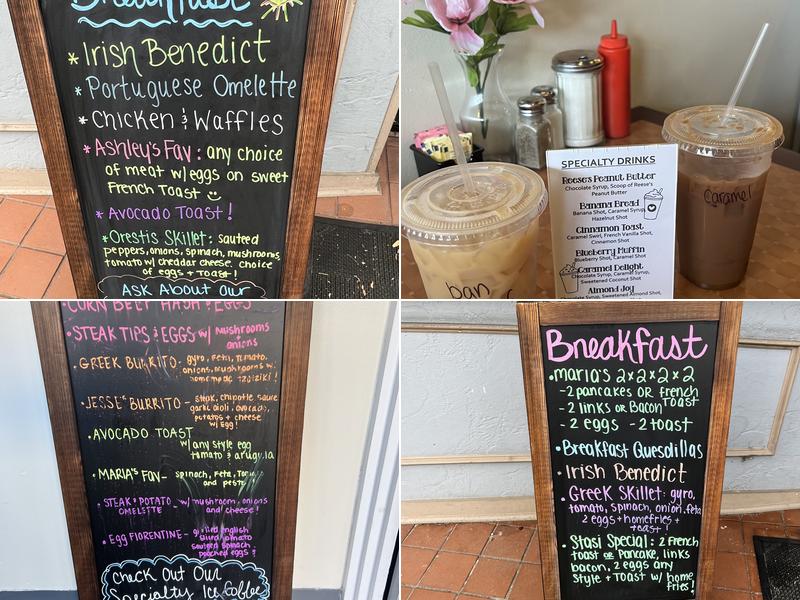 Breakfast
* Irish Benedict
* Portuguese Omelette
* Chicken & Waffles
* Ashley's Fav: any choice
of meat w/ eggs on sweet
French Toast
* Avocado Toast!
* Orestis Skillet: sauteed
peppers, onions, spinach, mushrooms,
tomato w/ cheddar cheese, choice
of eggs + toast!
ASK About our
SPECIALTY DRINKS
Reese's Peanut Butter
Chocolate Syrup, Scoop of Reese's
Peanut Butter
Banana Bread
Banana Shot, Caramel Syrup,
Hazelnut Shot
Cinnamon Toast
Caramel Swirl, French Vanilla Shot,
Cinnamon Shot
Blueberry Muffin
Blueberry Shot, Caramel Shot
Caramel Delight
Chocolate Syrup, Caramel Syrup,
Sweetened Coconut Shot
Almond Joy
Chocolate Syrup, Sweetened Almond Shot,
ban
Caramel
CORN BEEF HASH & EGGS
* STEAK TIPS & EGGS w/ mushrooms
onions
* GREEK BURRITO - gyro, feta, tomato,
onions, mushrooms w/
homemade tzatziki!
* JESSE'S BURRITO - steak, chipotle sauce
garlic aioli, avocado,
potatoes + cheese
w/ Egg!
* AVOCADO TOAST
w/ any style egg
tomato & arugula
* MARIA'S FAV - spinach, feta,
and pesto
* STEAK & POTATO - w/ mushroom, onions
OMELETTE and cheese!
* EGG FLORENTINE - grilled english
sliced tomato
sauteed spinach
poached eggs
Check Out Our
Specialty Ice Coffee
Breakfast
• maria's 2x2x2x2
- 2 pancakes OR French Toast
- 2 links OR Bacon
- 2 eggs - 2 toast
• Breakfast Quesdillas
• Irish Benedict
• Greek Skillet: gyro,
tomato, spinach, onion, feta
2 eggs + homefries +
toast!
• Stasi Special: 2 French
toast or Pancake, links
bacon, 2 eggs any
style + Toast w/ home
fries!